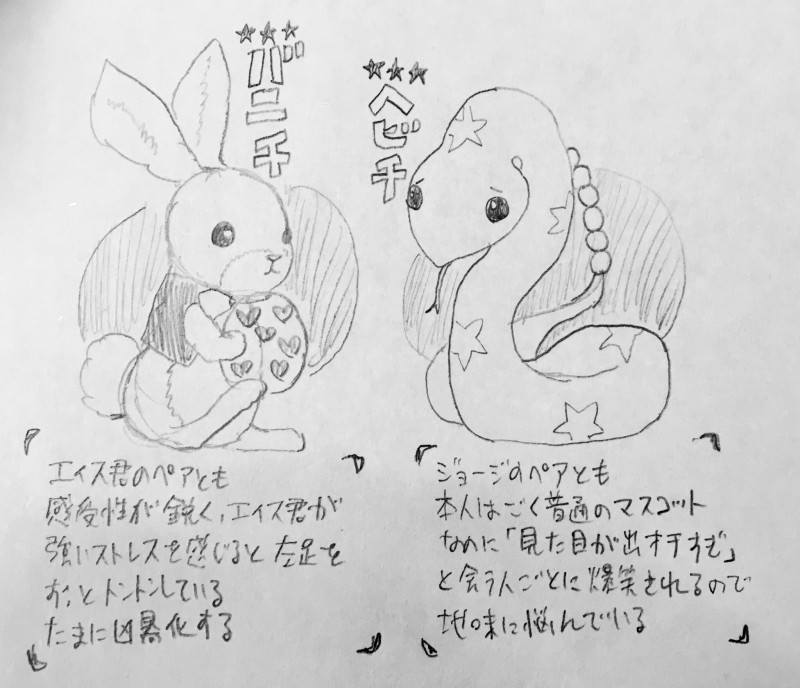 バニチ
エイス君のペアとも
感受性が鋭く、エイス君が
強いストレスを感じると左足を
ずっとトントンしている
たまに凶暴化する
ヘビチ
ジョージのペアとも
本人はごく普通のマスコット
なのに「見た目が出オチすぎ」
と会う人ごとに爆笑されるので
地味に悩んでいる